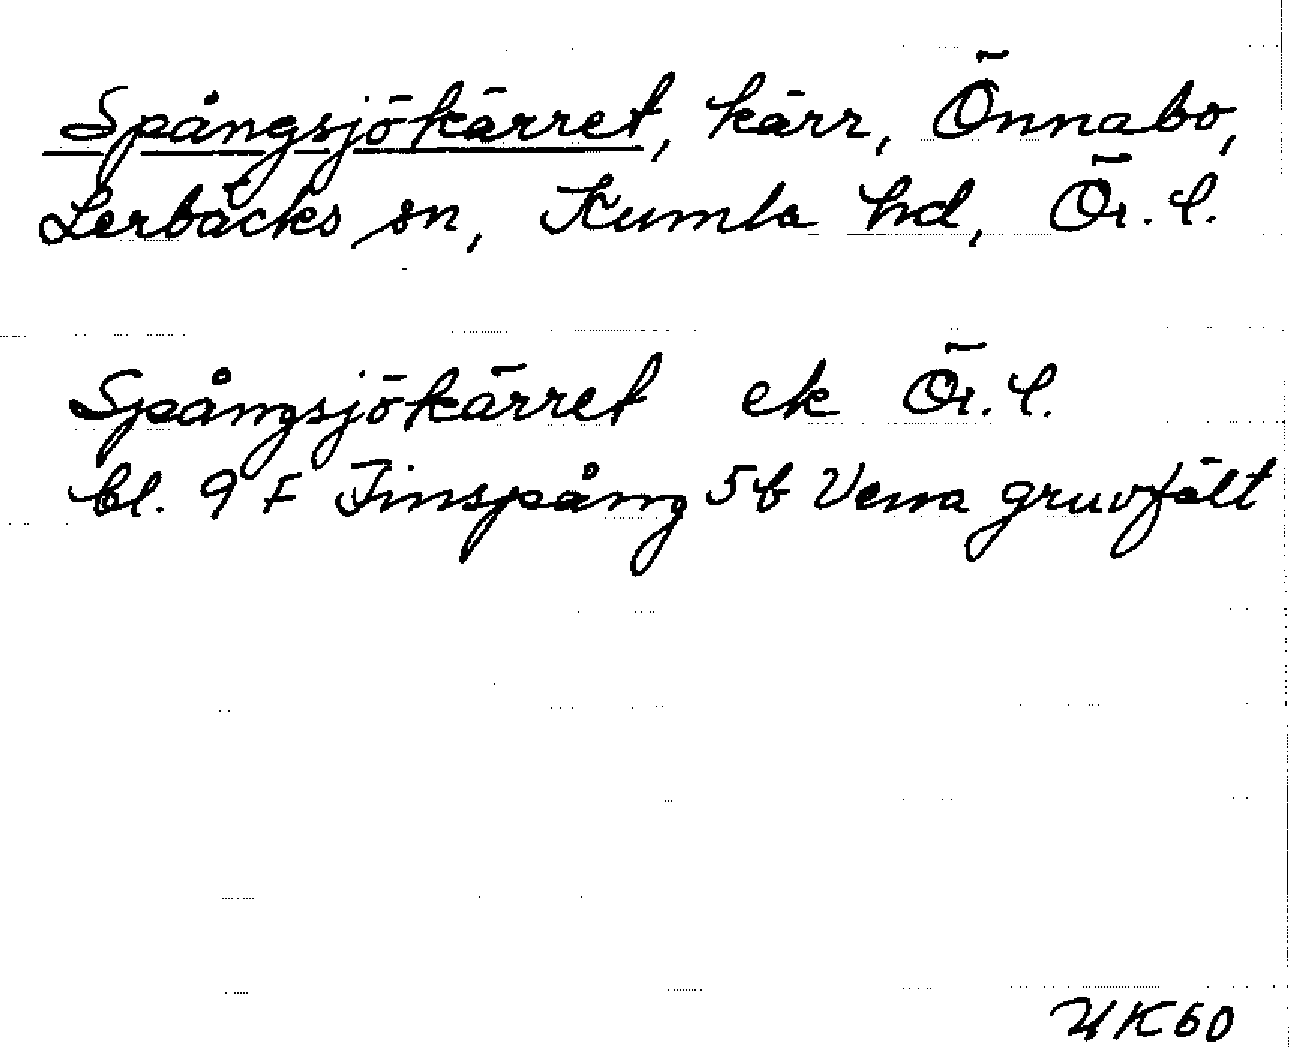 Spångsjökärret, kärr, Önnabo,
Lerbäcks sn, Kumla hd, Ör. l.
Spångsjökärret ek Ör. l.
bl. 9 F Finspång 5b Vena gruvfält
UK60